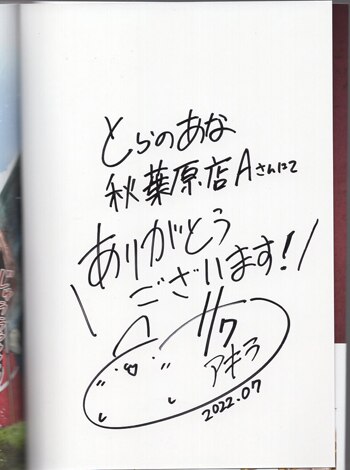 とらのあな
秋葉原店Aさんにて
ありがとう
ございます!
アキラ
2022.07